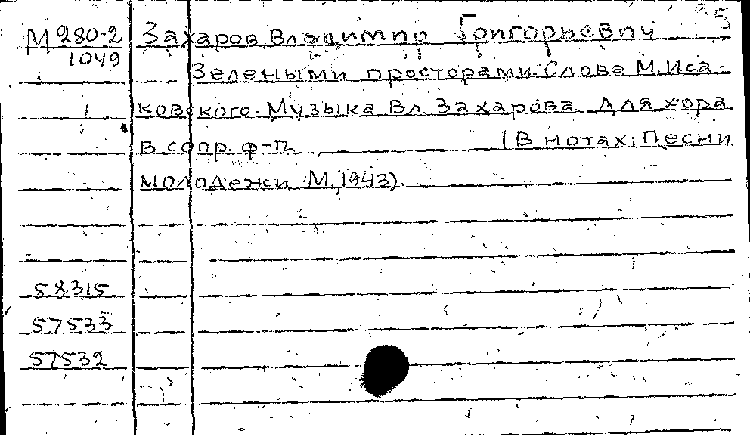 М280-2 Захаров Владимир Григорьевич
1049
Зелеными просторами. Слова М. Иса-
ковского. Музыка Вл. Захарова. Для хора
в сопр. ф-п. (В нотах: Песни
молодежи. М. 1943).
58315
57533
57532